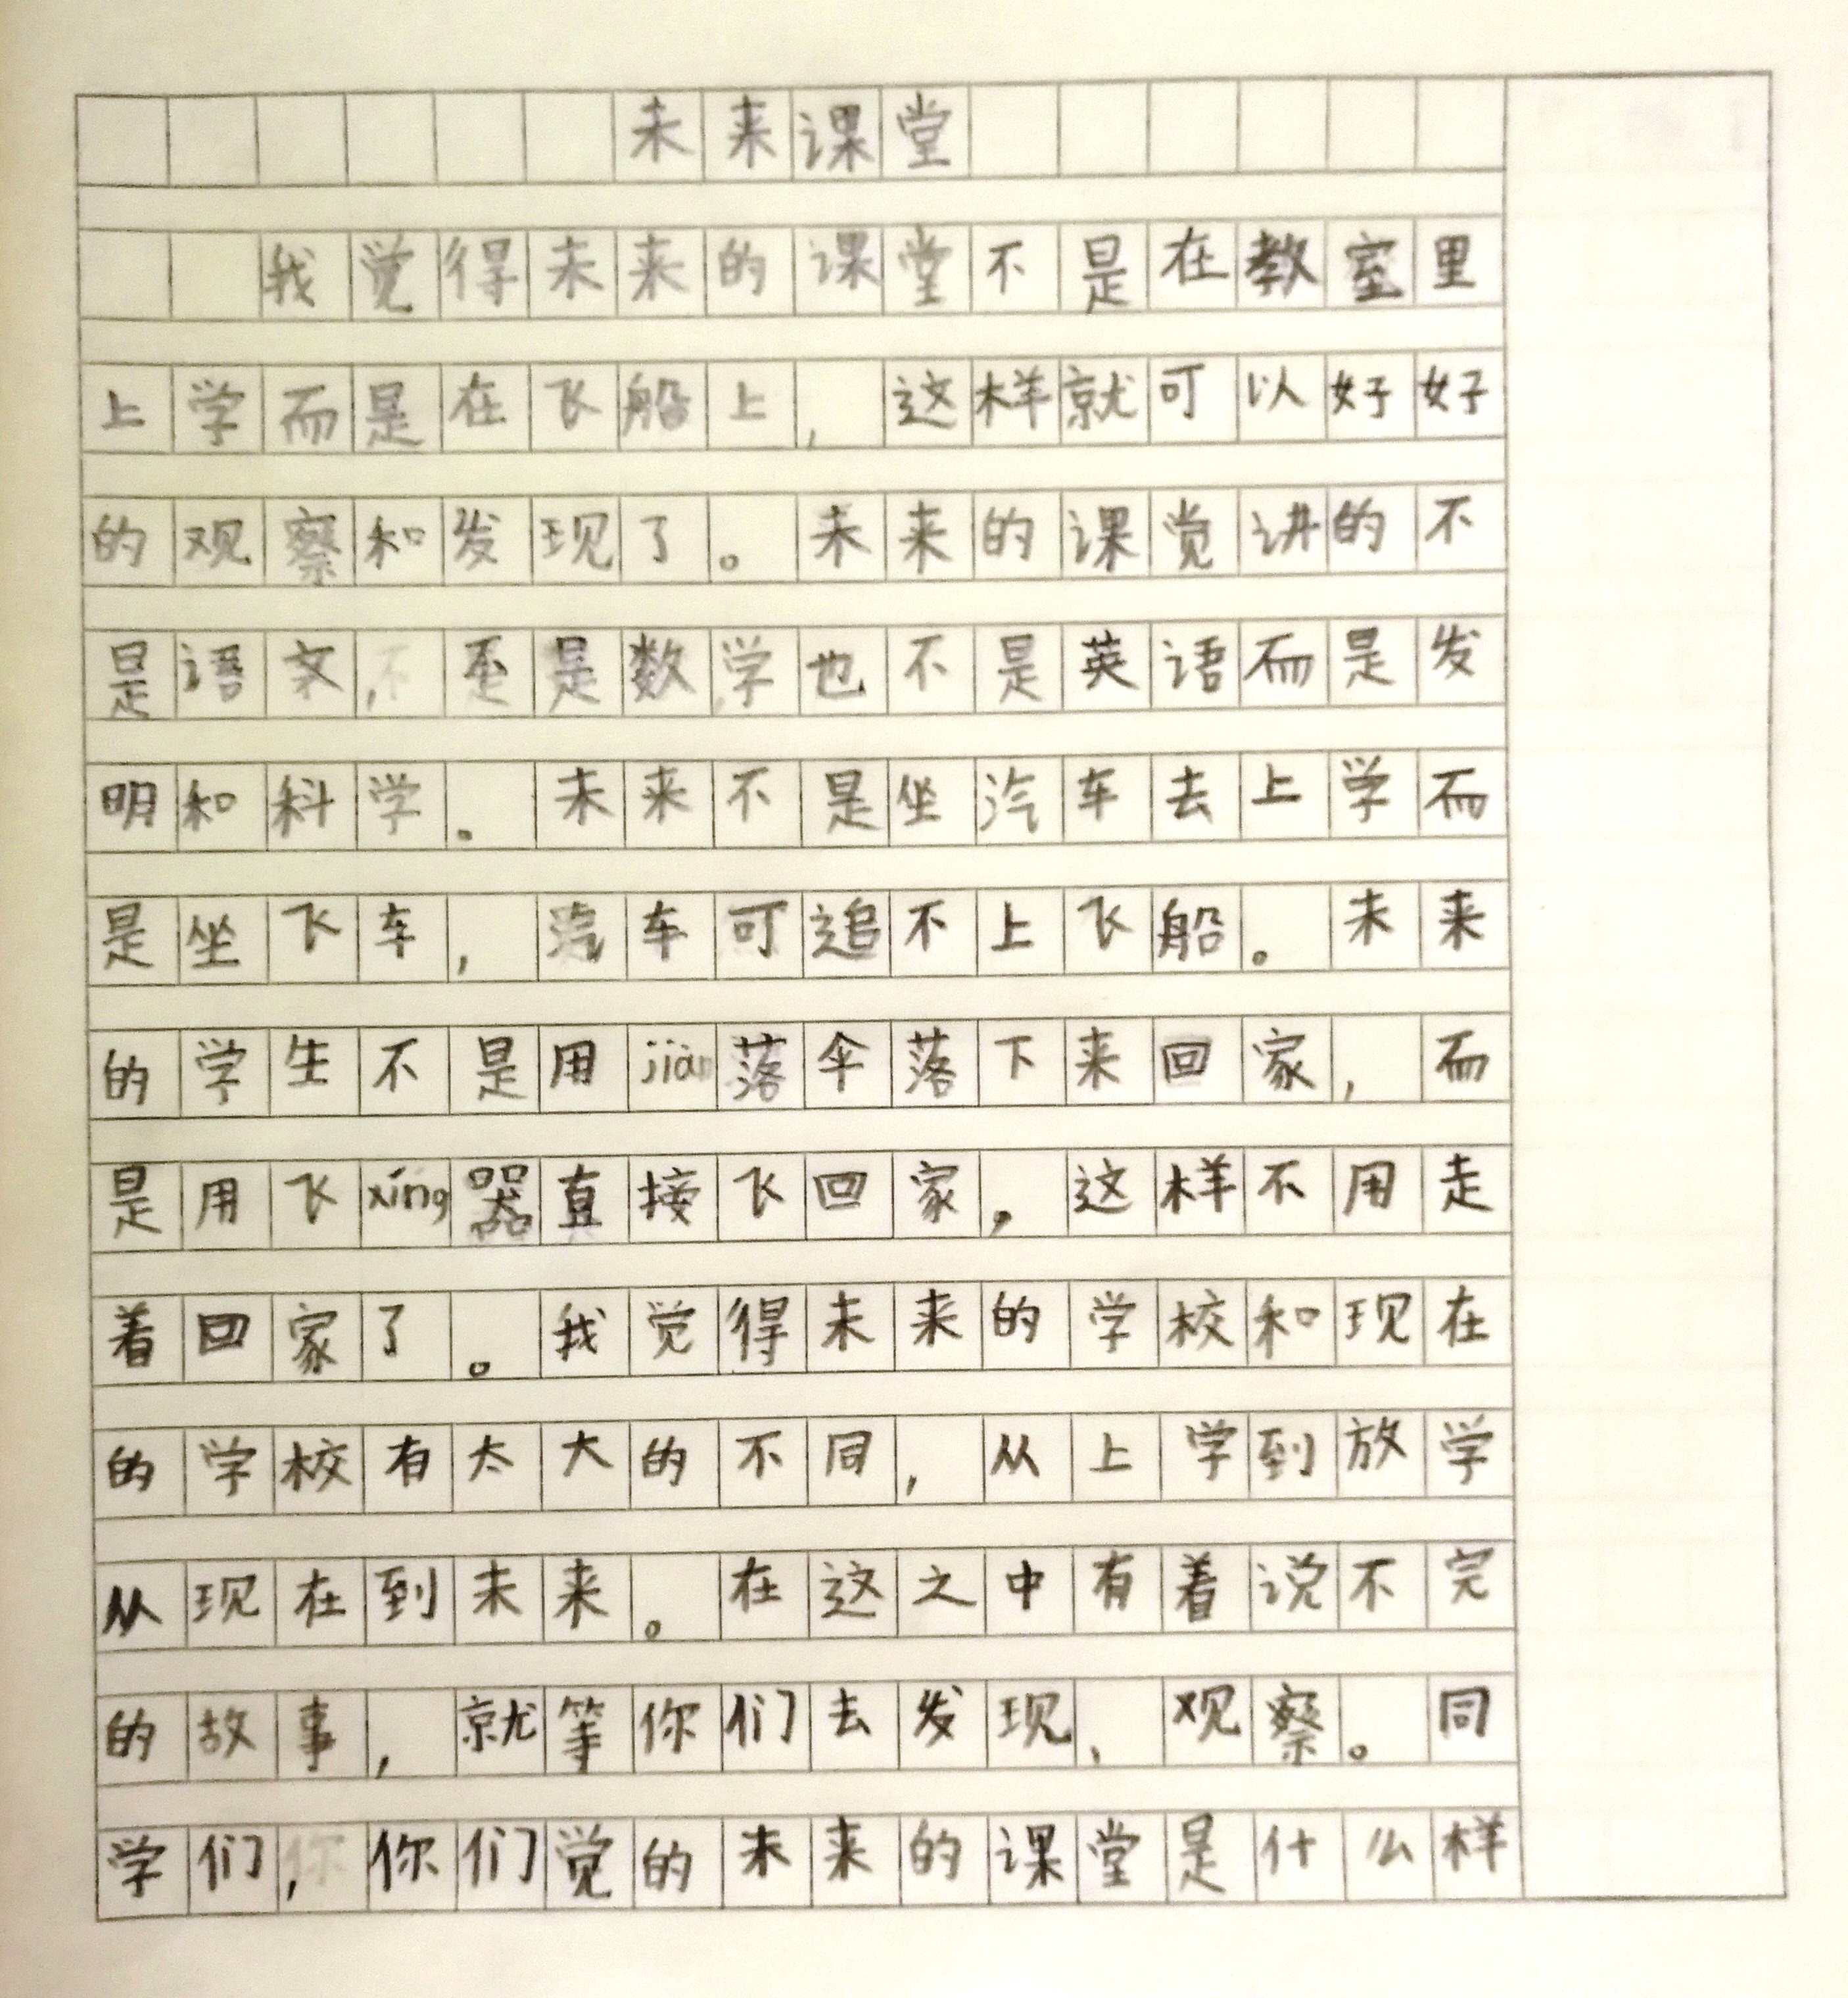 未来课堂
我觉得未来的课堂不是在教室里
上学而是在飞船上，这样就可以好好
的观察和发现了。未来的课觉讲的不
是语文，不是数学也不是英语而是发
明和科学。未来不是坐汽车去上学而
是坐飞车，汽车可追不上飞船。未来
的学生不是用jiàn落伞落下来回家，而
是用飞xíng器直接飞回家，这样不用走
着回家了。我觉得未来的学校和现在
的学校有太大的不同，从上学到放学
从现在到未来。在这之中有着说不完
的故事，就等你们去发现、观察。同
学们，你们觉的未来的课堂是什么样